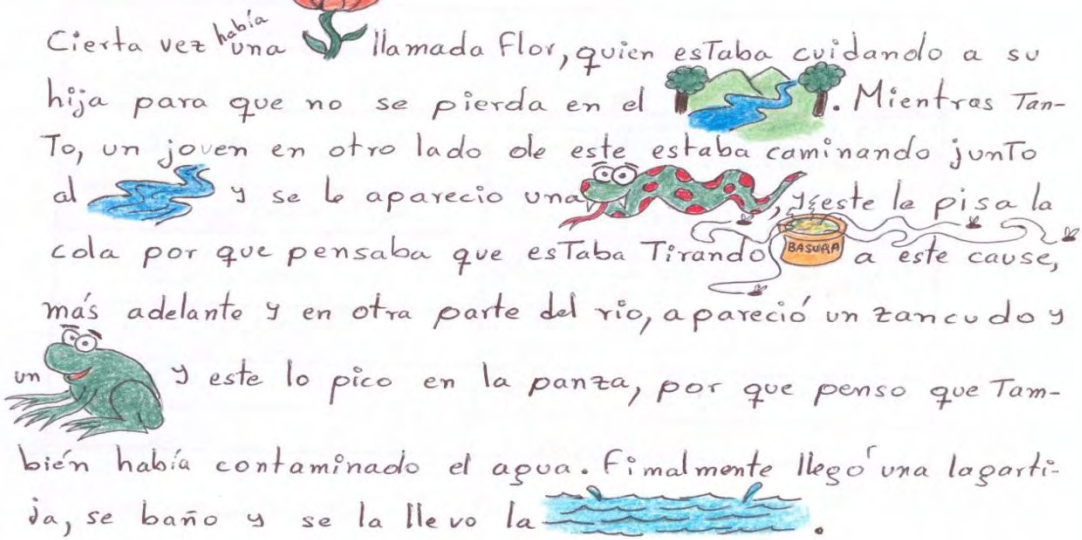 Cierta vez había una llamada Flor, quien estaba cuidando a su
hija para que no se pierda en el . Mientras Tan-
To, un joven en otro lado de este estaba caminando junTo
al y se le aparecio una , y este le pisa la
cola por que pensaba que esTaba Tirando BASURA a este cause,
más adelante y en otra parte del rio, apareció un zancudo y
un y este lo pico en la panza, por que penso que Tam-
bién había contaminado el agua. Finalmente llegó una lagarti-
ja, se baño y se la llevo la .